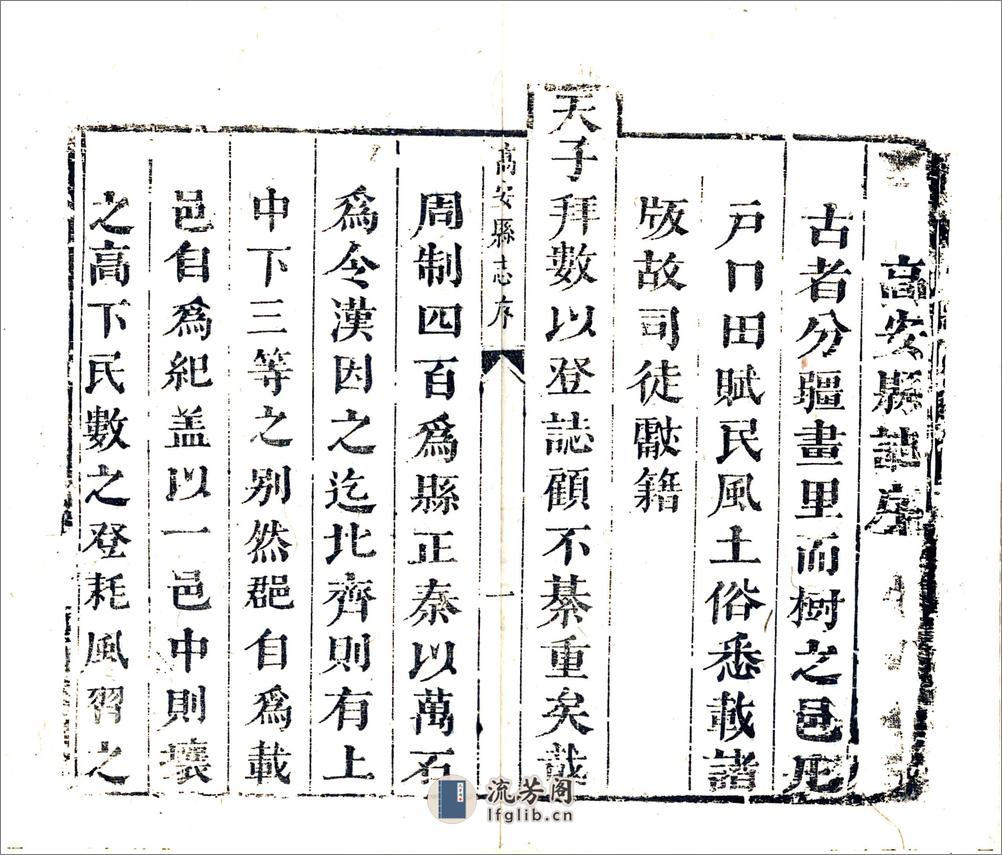 高安縣誌序
古者分疆畫里而樹之邑凡
戸口田賦民風土俗悉載諸
版故司徒獻籍
天子拜數以登誌顧不綦重矣哉
高安縣志序
一
周制四百爲縣正秦以萬石
爲令漢因之迄北齊則有上
中下三等之别然郡自爲載
邑自爲紀盖以一邑中則壤
之高下民數之登耗風習之
流芳阁
lfglib.cn